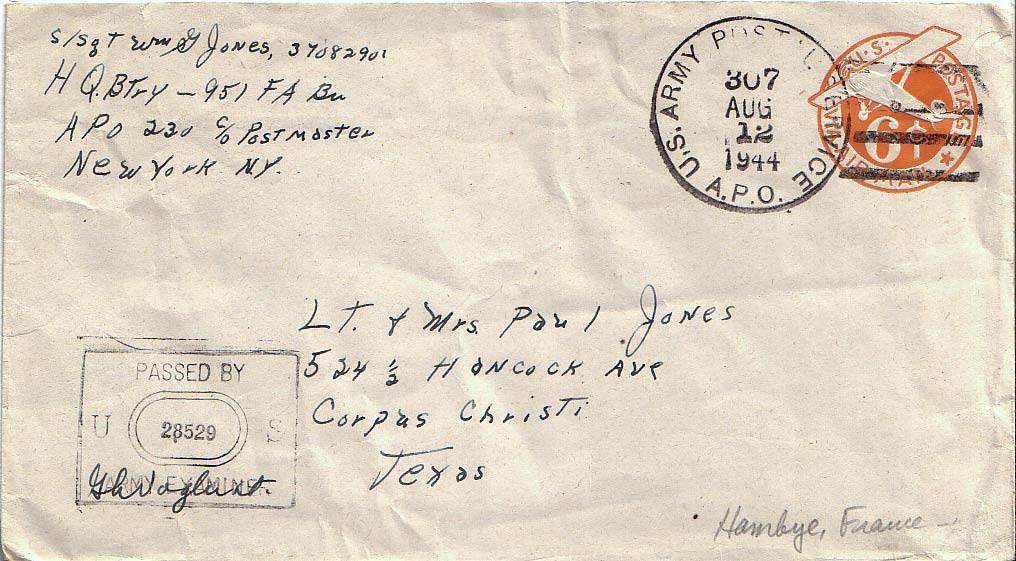 S/Sgt Wm G Jones, 37082901
HQ.BTry - 951 FA Bn
APO 230 c/o Postmaster
New York N.Y.
U.S. ARMY POSTAL SERVICE
A.P.O.
307
AUG
12
1944
U.S. POSTAGE
6¢
AIR MAIL
Lt. & Mrs. Paul Jones
524 ½ Hancock Ave
Corpus Christi
Texas
PASSED BY
U 28529 S
ARMY EXAMINER
Hambye, France -